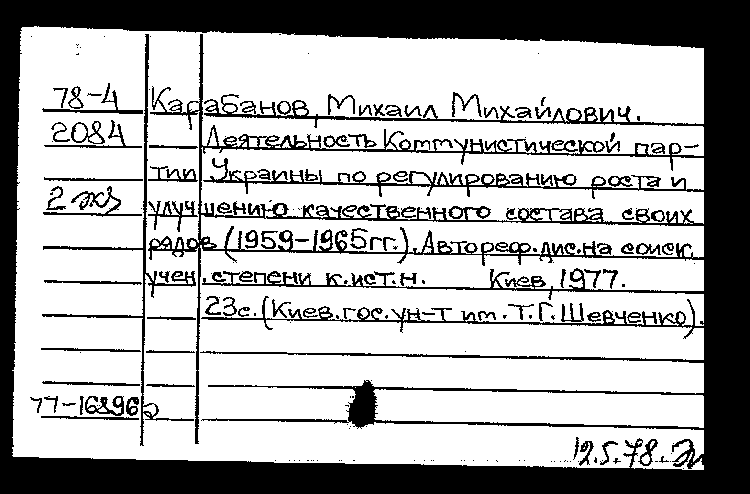 78-4 Карабанов, Михаил Михайлович.
2084 Деятельность Коммунистической пар-
тии Украины по регулированию роста и
2 экз улучшению качественного состава своих
рядов (1959-1965гг.). Автореф. дис. на соиск.
учен. степени к.ист.н. Киев, 1977.
23с. (Киев. гос. ун-т им. Т.Г. Шевченко).
77-16896
12.5.78.